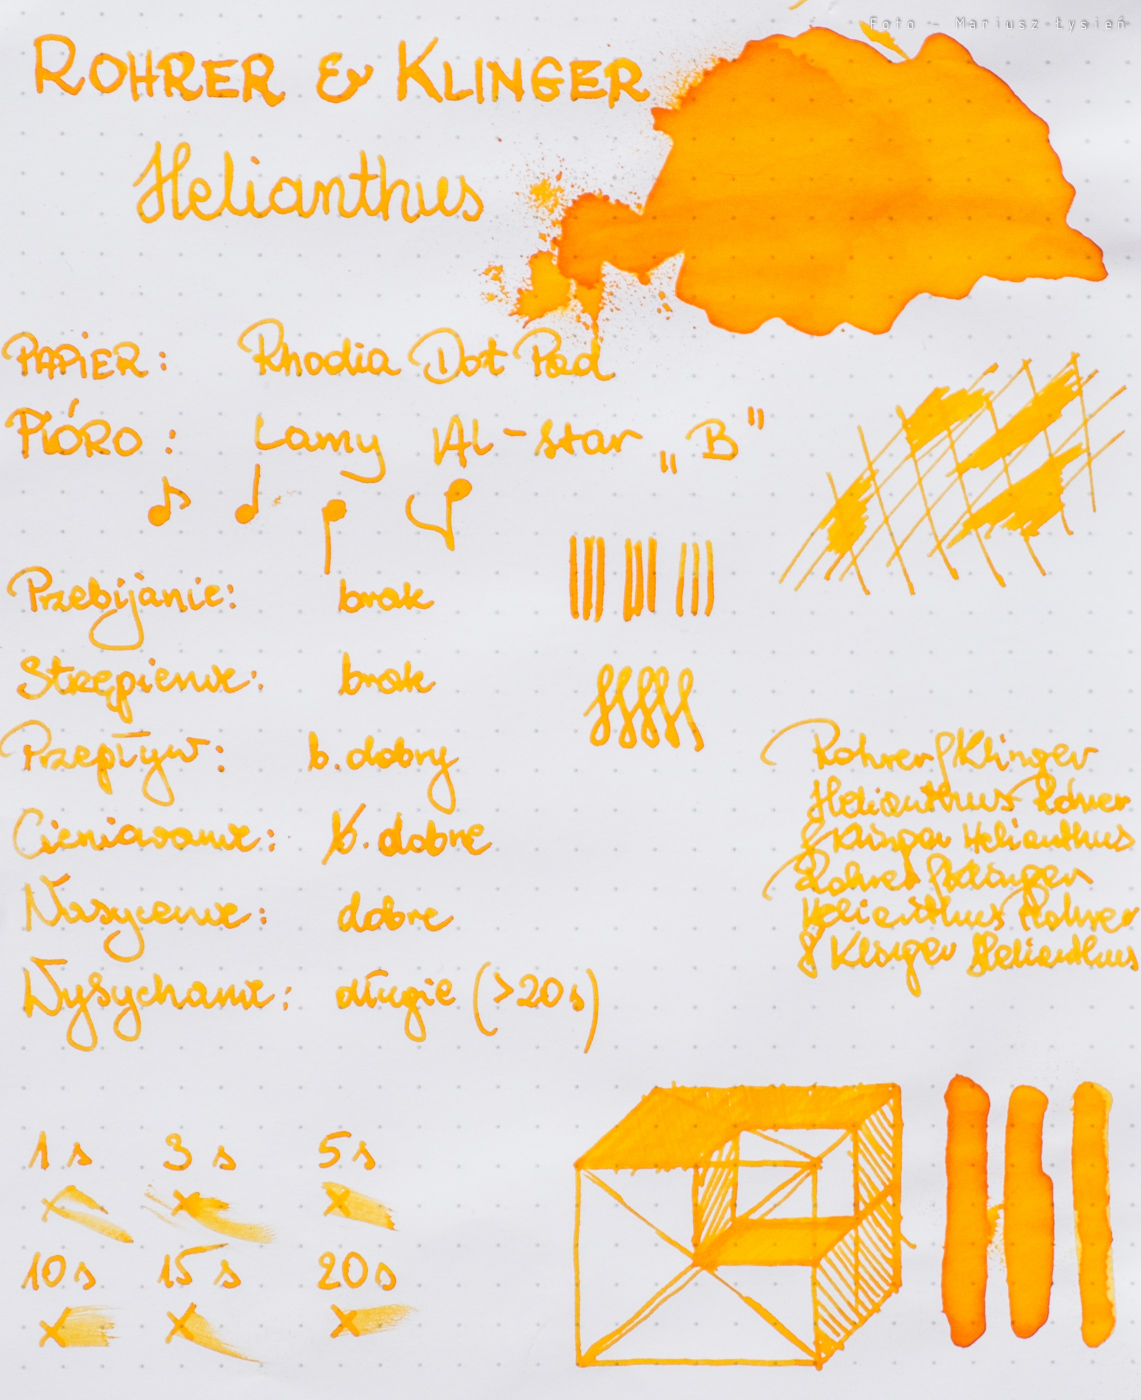 Foto - Mariusz Łysień
ROHRER & KLINGER
Helianthus
PAPIER: Rhodia Dot Pad
PIÓRO: Lamy Al-star „B"
Przebijanie: brak
Strzępienie: brak
Przepływ: b. dobry
Cieniowanie: b. dobre
Nasycenie: dobre
Wysychanie: długie (>20s)
Rohrer & Klinger
Helianthus Rohrer
& Klinger Helianthus
Rohrer & Klinger
Helianthus Rohrer
& Klinger Helianthus
1s 3s 5s
10s 15s 20s